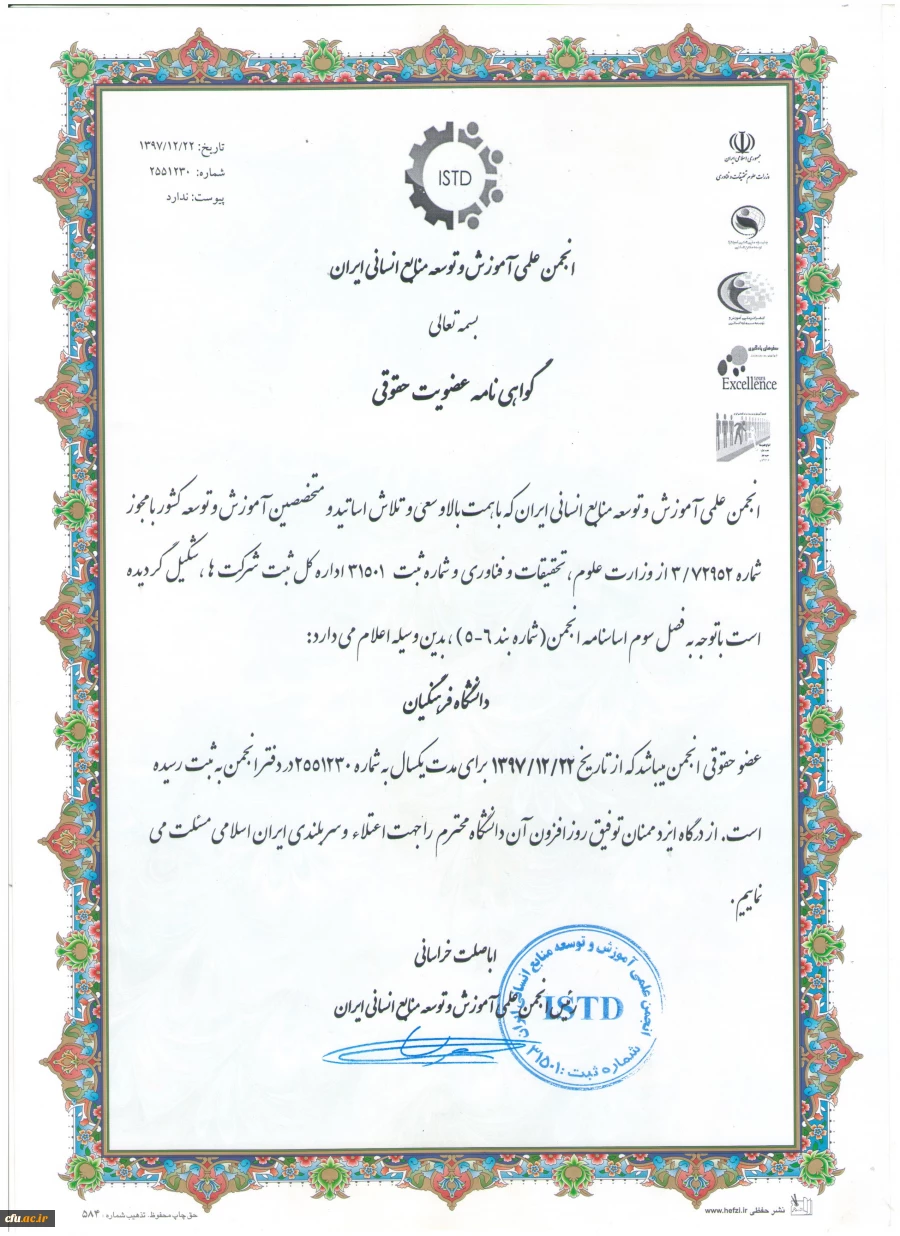 تاریخ: ۱۳۹۷/۱۲/۲۲
شماره: ۲۵۵۱۲۳۰
پیوست: ندارد
ISTD
جمهوری اسلامی ایران
وزارت علوم تحقیقات و فناوری
Excellence
انجمن علمی آموزش و توسعه منابع انسانی ایران
بسمه تعالی
گواهی نامه عضویت حقوقی
انجمن علمی آموزش و توسعه منابع انسانی ایران که با همت بالا و سعی و تلاش اساتید و متخصصین آموزش و توسعه کشور با مجوز
شماره ۳/۷۲۹۵۲ از وزارت علوم، تحقیقات و فناوری و شماره ثبت ۳۱۵۰۱ اداره کل ثبت شرکت ها، تشکیل گردیده
است با توجه به فصل سوم اساسنامه انجمن (شماره بند ۶-۵)، بدین وسیله اعلام می دارد:
دانشگاه فرهنگیان
عضو حقوقی انجمن میباشد که از تاریخ ۱۳۹۷/۱۲/۲۲ برای مدت یکسال به شماره ۲۵۵۱۲۳۰ در دفتر انجمن به ثبت رسیده
است. از درگاه ایزد ممنان توفیق روز افزون آن دانشگاه محترم را جهت اعتلاء و سربلندی ایران اسلامی مسئلت می
نماییم.
اباصلت خراسانی
رئیس انجمن علمی آموزش و توسعه منابع انسانی ایران
انجمن علمی آموزش و توسعه منابع انسانی ایران
ISTD
شماره ثبت: ۳۱۵۰۱
نشر حفظی www.hefzi.ir
حق چاپ محفوظ. تذهیب شماره: ۵۸۴
cfu.ac.ir